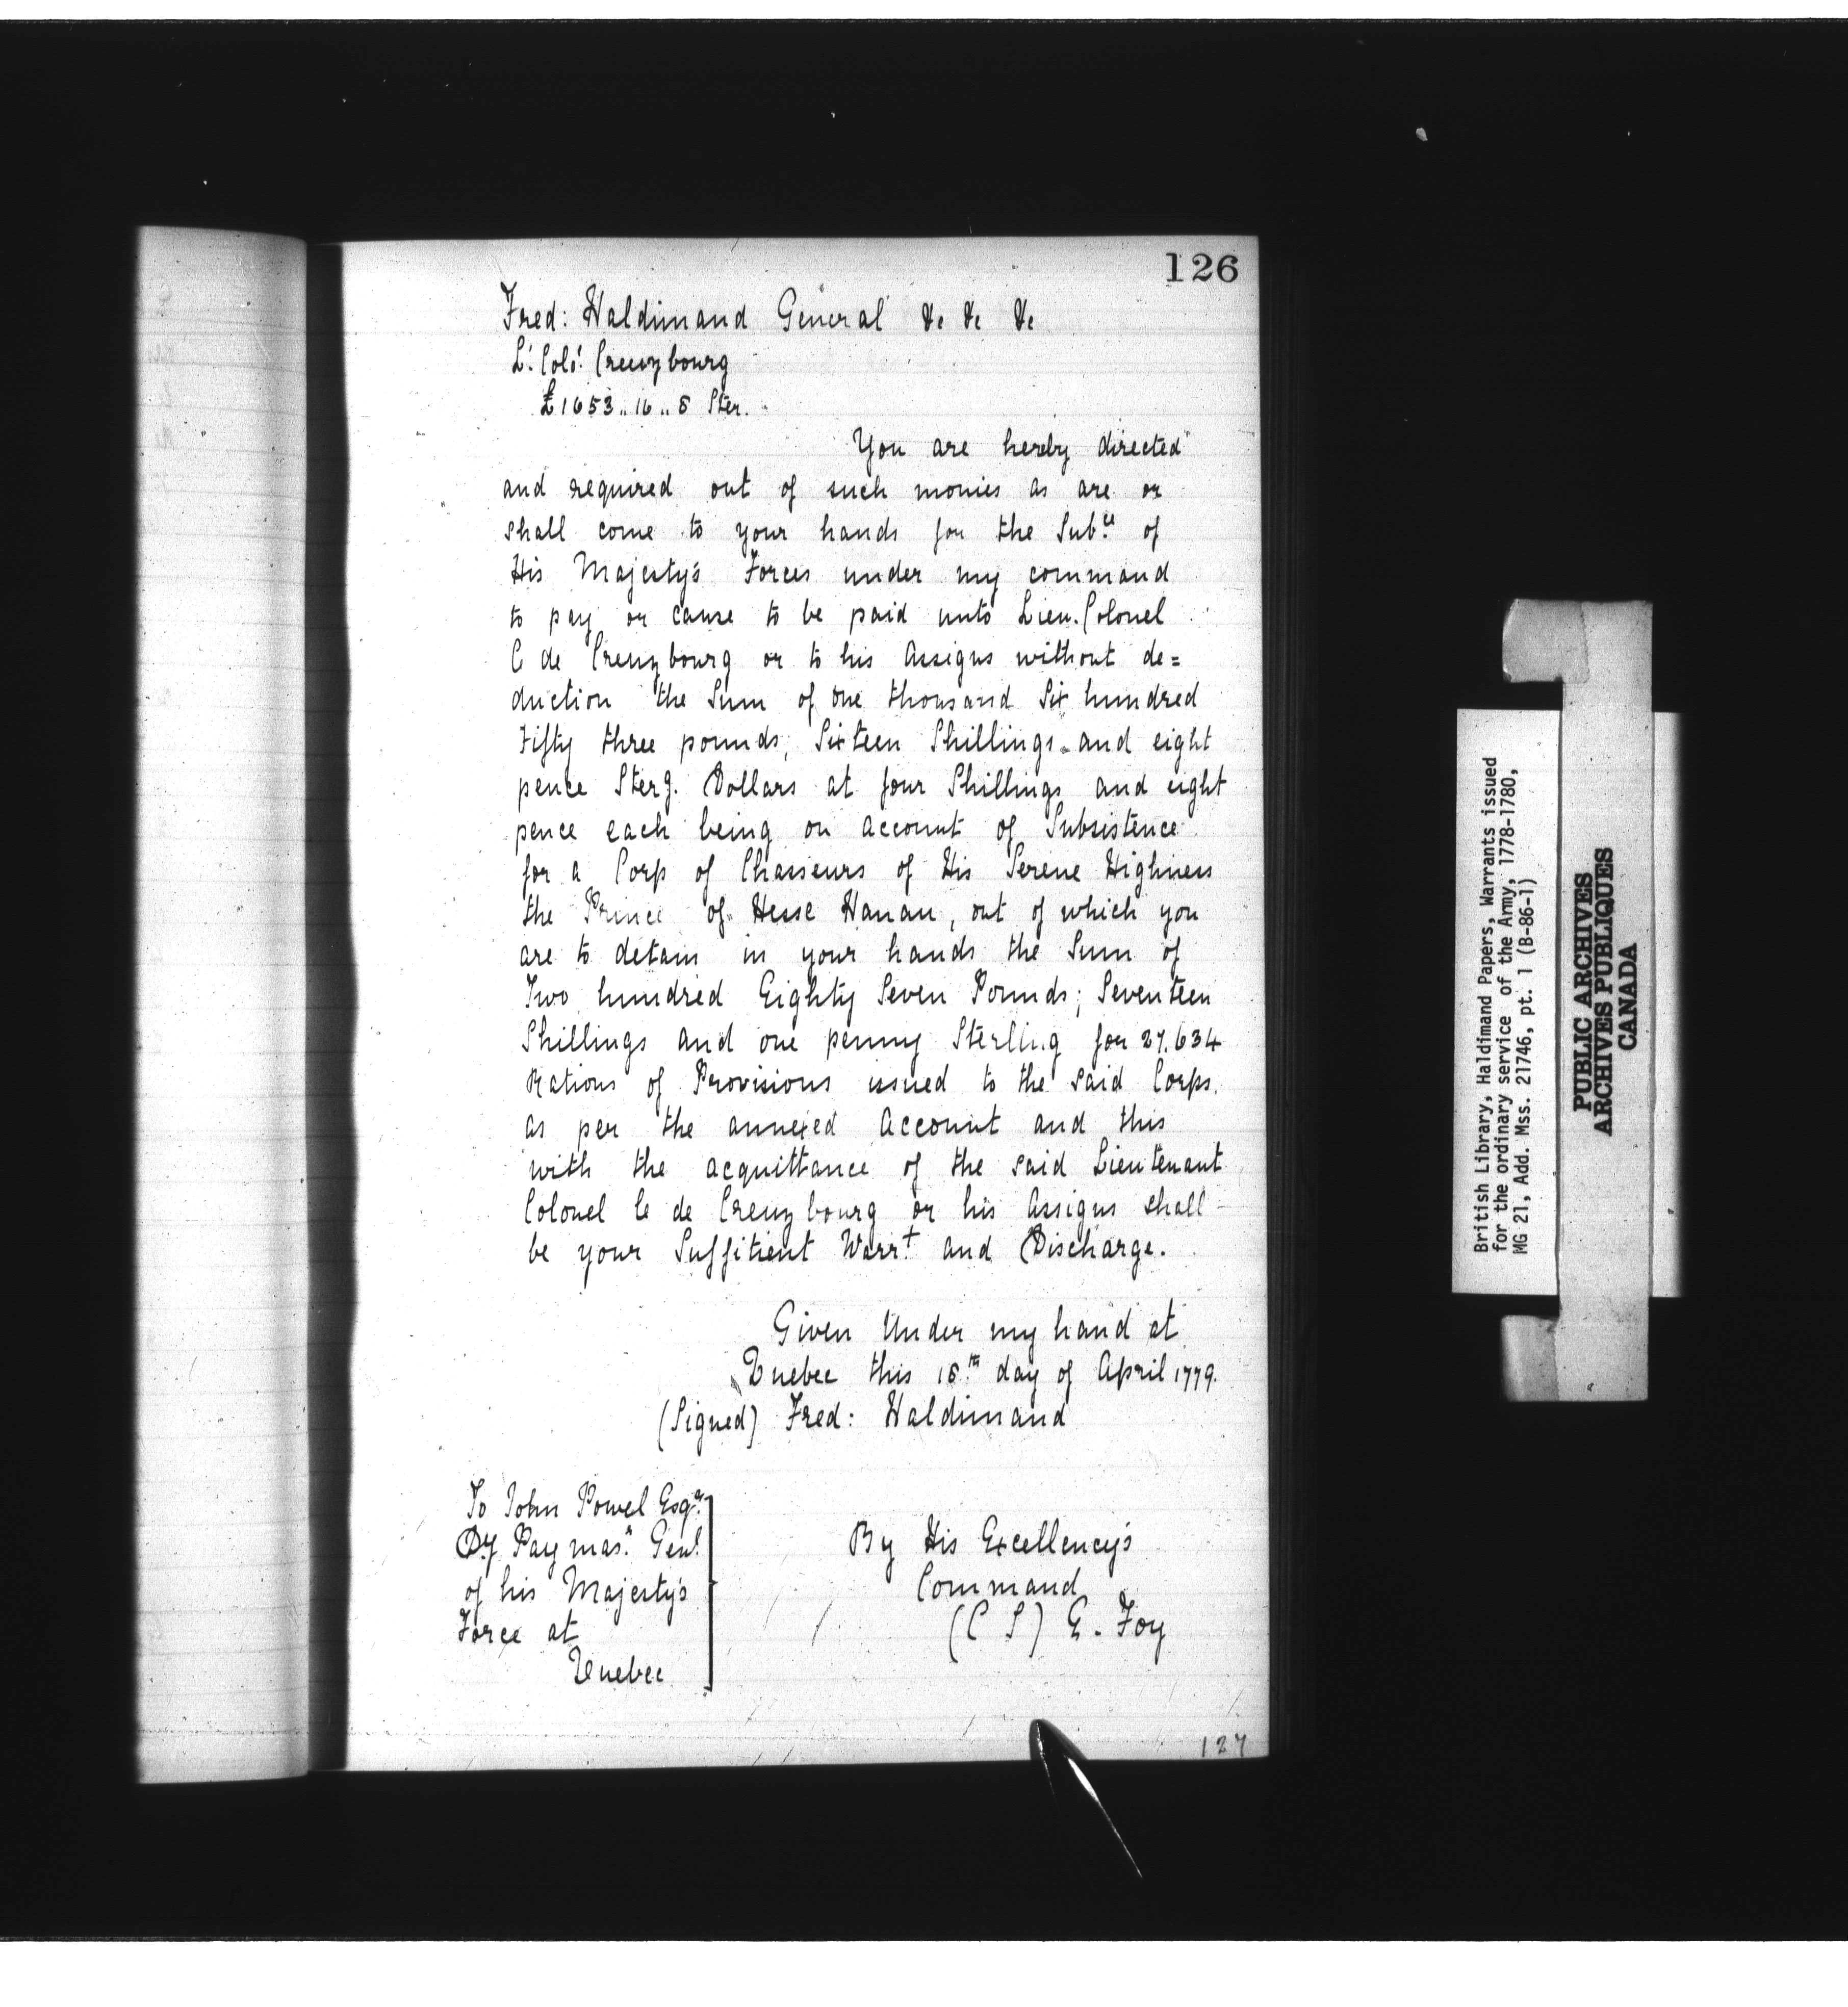 126
Fred: Haldimand General &c &c &c
Lt. Coll. Creuzbourg
£1653„16„8 Ster.
You are hereby directed
and required out of such monies as are or
shall come to your hands for the Subce of
His Majesty's Forces under my command
to pay or cause to be paid unto Lieu. Colonel
C de Creuzbourg or to his Assigns without de=
duction the Sum of one thousand Six hundred
Fifty three pounds, Sixteen Shillings and eight
pence Sterg. Dollars at four Shillings and eight
pence each being on account of Subsistence
for a Corp of Chasseurs of His Serene Highness
the Prince of Hesse Hanau, out of which you
are to detain in your hands the Sum of
Two hundred Eighty Seven Pounds; Seventeen
Shillings and one penny Sterling for 27.634
Rations of Provisions issued to the said Corps.
as per the annexed Account and this
with the acquittance of the said Lieutenant
Colonel C de Creuzbourg or his Assigns shall
be your Suffitient Warrt and Discharge.
Given Under my hand at
Quebec this 18th day of April 1779.
(Signed) Fred: Haldimand
To John Powel Esqr.
Dy Paymasr. Genl.
of his Majesty's
Force at
Quebec
By His Excellency's
Command
(C S) E. Foy
127
British Library, Haldimand Papers, Warrants issued
for the ordinary service of the Army, 1778-1780,
MG 21, Add. Mss. 21746, pt. 1 (B-86-1)
PUBLIC ARCHIVES
ARCHIVES PUBLIQUES
CANADA